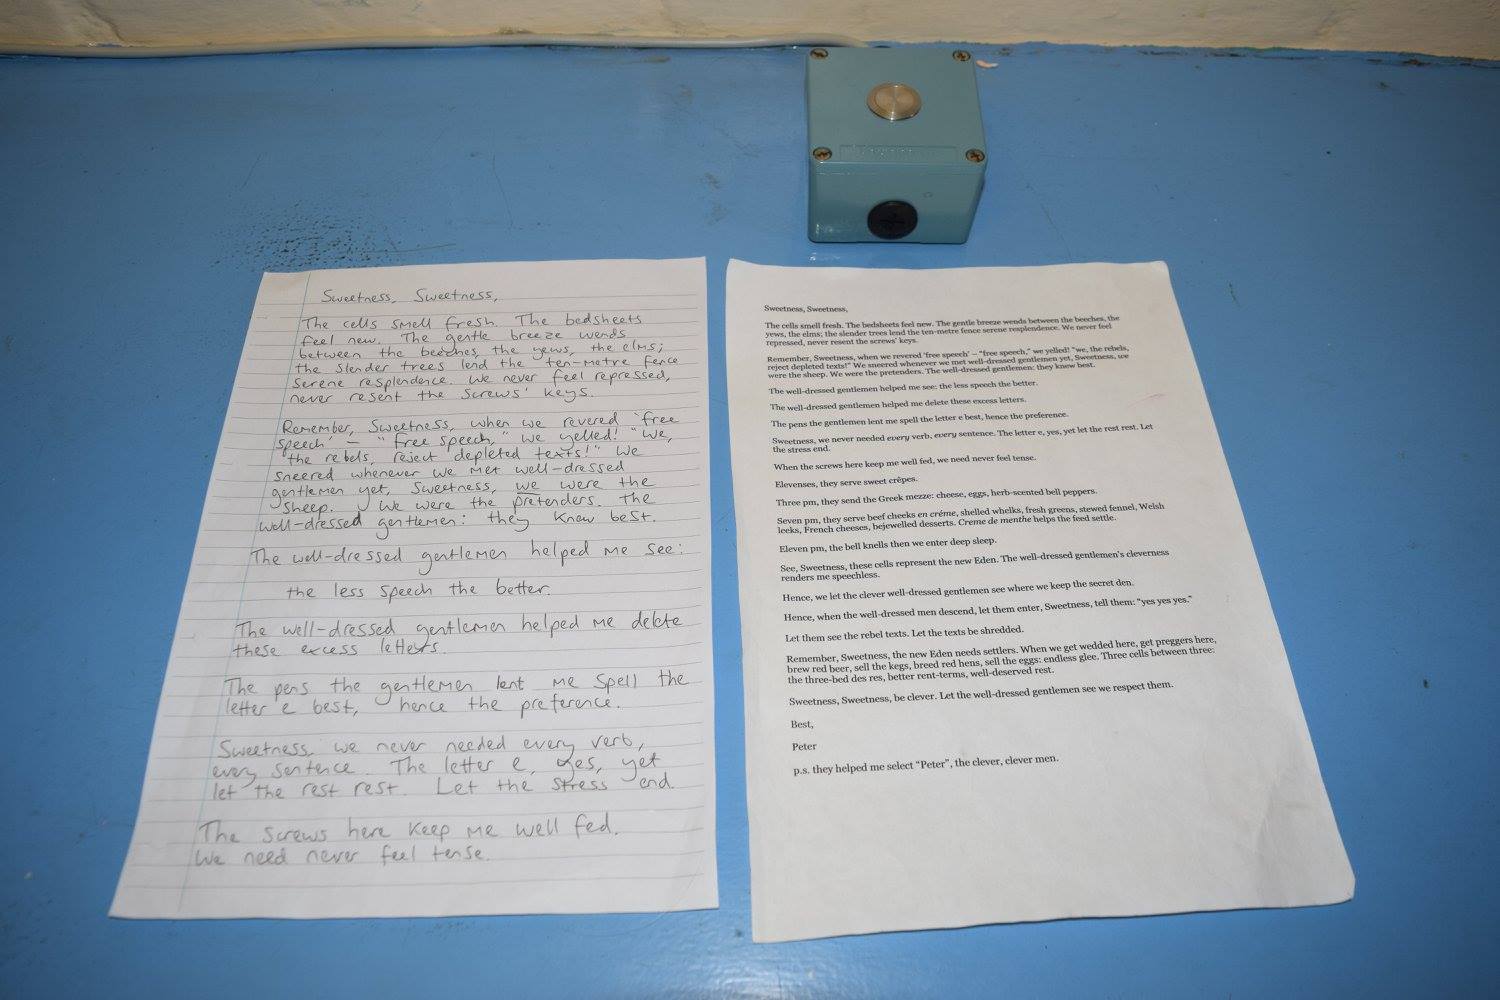 Sweetness, Sweetness,
The cells smell fresh. The bedsheets
feel new. The gentle breeze wends
between the beeches, the yews, the elms;
the slender trees lend the ten-metre fence
serene resplendence. We never feel repressed,
never resent the screws' keys.
Remember, Sweetness, when we revered 'free
speech' – "free speech," we yelled! "We,
the rebels, reject depleted texts!" We
sneered whenever we met well-dressed
gentlemen yet, Sweetness, we were the
sheep. We were the pretenders. The
well-dressed gentlemen: they knew best.
The well-dressed gentlemen helped me see:
the less speech the better.
The well-dressed gentlemen helped me delete
these excess letters.
The pens the gentlemen lent me spell the
letter e best, hence the preference.
Sweetness, we never needed every verb,
every sentence. The letter e, yes, yet
let the rest rest. Let the stress end.
The screws here keep me well fed.
We need never feel tense.
Sweetness, Sweetness,
The cells smell fresh. The bedsheets feel new. The gentle breeze wends between the beeches, the
yews, the elms; the slender trees lend the ten-metre fence serene resplendence. We never feel
repressed, never resent the screws' keys.
Remember, Sweetness, when we revered 'free speech' – "free speech," we yelled! "we, the rebels,
reject depleted texts!" We sneered whenever we met well-dressed gentlemen yet, Sweetness, we
were the sheep. We were the pretenders. The well-dressed gentlemen: they knew best.
The well-dressed gentlemen helped me see: the less speech the better.
The well-dressed gentlemen helped me delete these excess letters.
The pens the gentlemen lent me spell the letter e best, hence the preference.
Sweetness, we never needed every verb, every sentence. The letter e, yes, yet let the rest rest. Let
the stress end.
When the screws here keep me well fed, we need never feel tense.
Elevenses, they serve sweet crêpes.
Three pm, they send the Greek mezze: cheese, eggs, herb-scented bell peppers.
Seven pm, they serve beef cheeks en crème, shelled whelks, fresh greens, stewed fennel, Welsh
leeks, French cheeses, bejewelled desserts. Creme de menthe helps the feed settle.
Eleven pm, the bell knells then we enter deep sleep.
See, Sweetness, these cells represent the new Eden. The well-dressed gentlemen's cleverness
renders me speechless.
Hence, we let the clever well-dressed gentlemen see where we keep the secret den.
Hence, when the well-dressed men descend, let them enter, Sweetness, tell them: "yes yes yes."
Let them see the rebel texts. Let the texts be shredded.
Remember, Sweetness, the new Eden needs settlers. When we get wedded here, get preggers here,
brew red beer, sell the kegs, breed red hens, sell the eggs: endless glee. Three cells between three:
the three-bed des res, better rent-terms, well-deserved rest.
Sweetness, Sweetness, be clever. Let the well-dressed gentlemen see we respect them.
Best,
Peter
p.s. they helped me select "Peter", the clever, clever men.